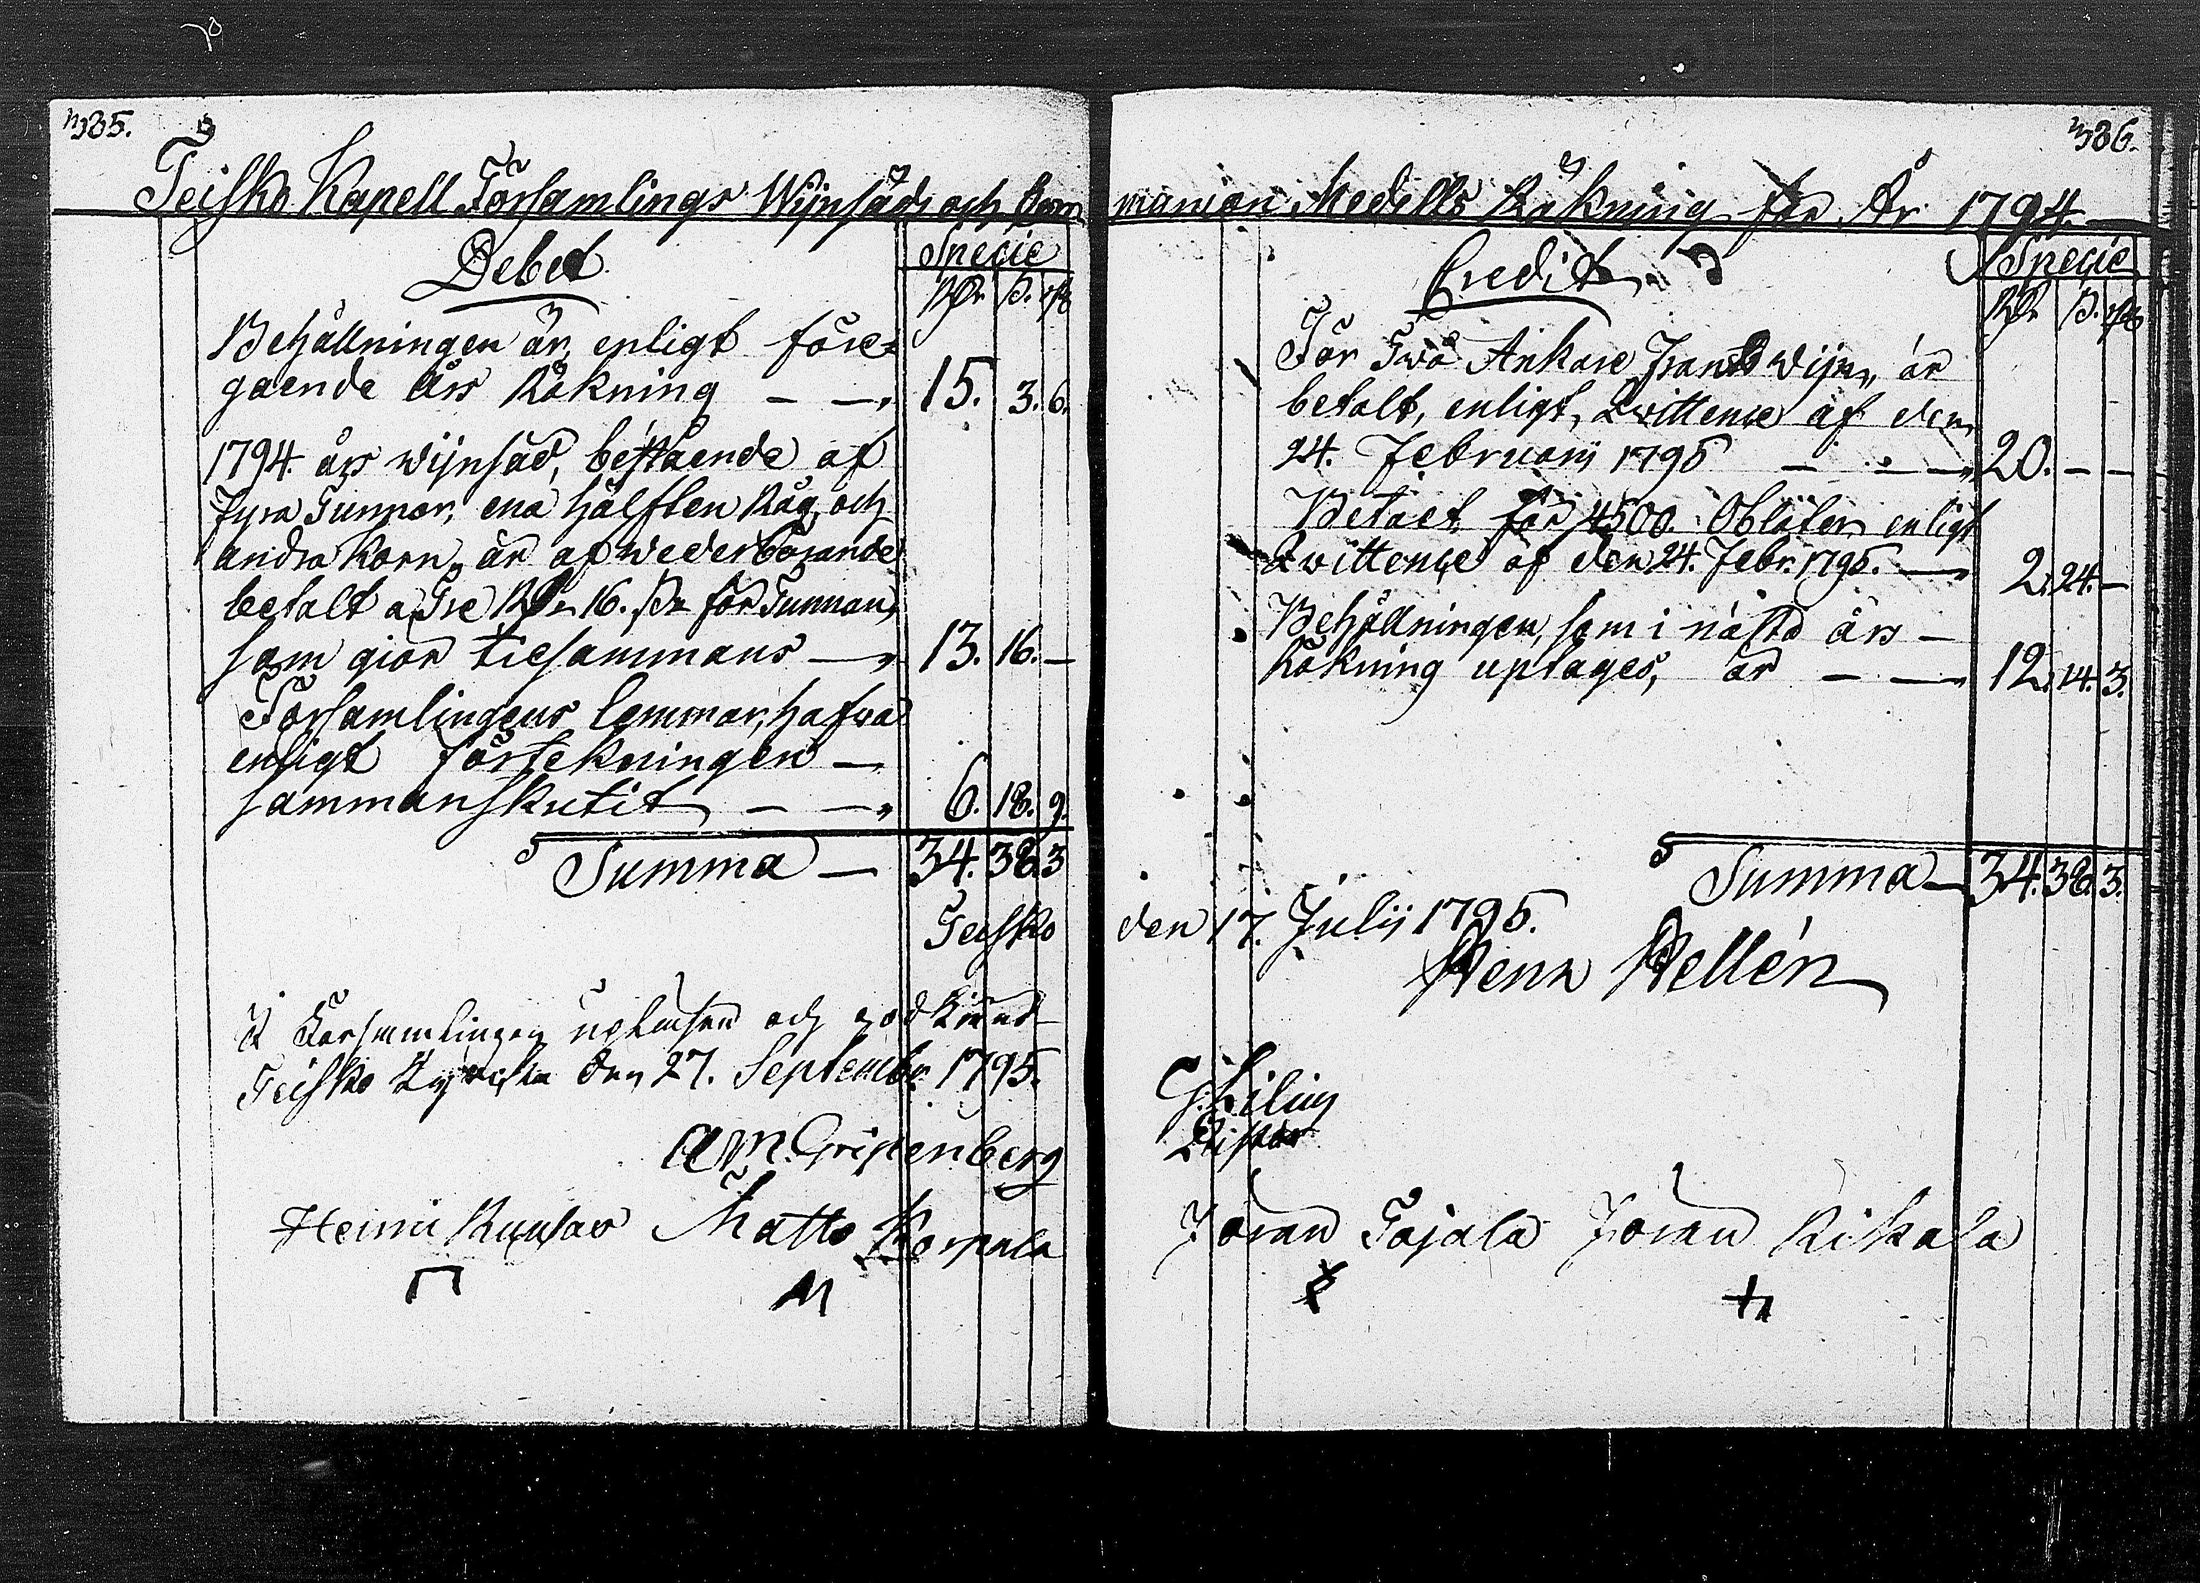 385.
Teisko Kapell Församlings Wijnsäds och Kom
Debet
Specie
Rdr ß. rst
Behållningen är, enligt före-
gående års Räkning — — 15. 3. 6.
1794 års wijnsäd, bestående af
fyra Tunnor, ena hälften Råg, och
andra Korn, är af wederbörande
betalt a Tre Rdr 16. ß för Tunnan,
som giör tilsammans — 13. 16. —
Församlingens lemmar, hafwa
enligt förtekningen —
sammanskutit — — 6. 18. 9.
Summa — 34. 38. 3
Teisko
I Församlingen upläsen och godkänd
Teisko Kyrcka den 27. Septembr 1795.
A M Gripenberg
Heimi Matts
386.
munion Medels Räkning för År 1794.
Credit
Specie
Rdr ß. rst
För Twå Ankare franst wijn, är
betalt, enligt, Qwittence af den
24. Februarii 1795 — — 20. — —
Betalt för 4500. Oblåter enligt
Qwittence af den 24. Febr. 1795. — 2. 24. —
Behållningen, som i nästa års —
Räkning uptages, är — — 12. 14. 3.
Summa — 34. 38. 3.
den 17. Julii 1795.
Henr Hellén
G. Lilius
Jöran Tojala Jöran Kiskala